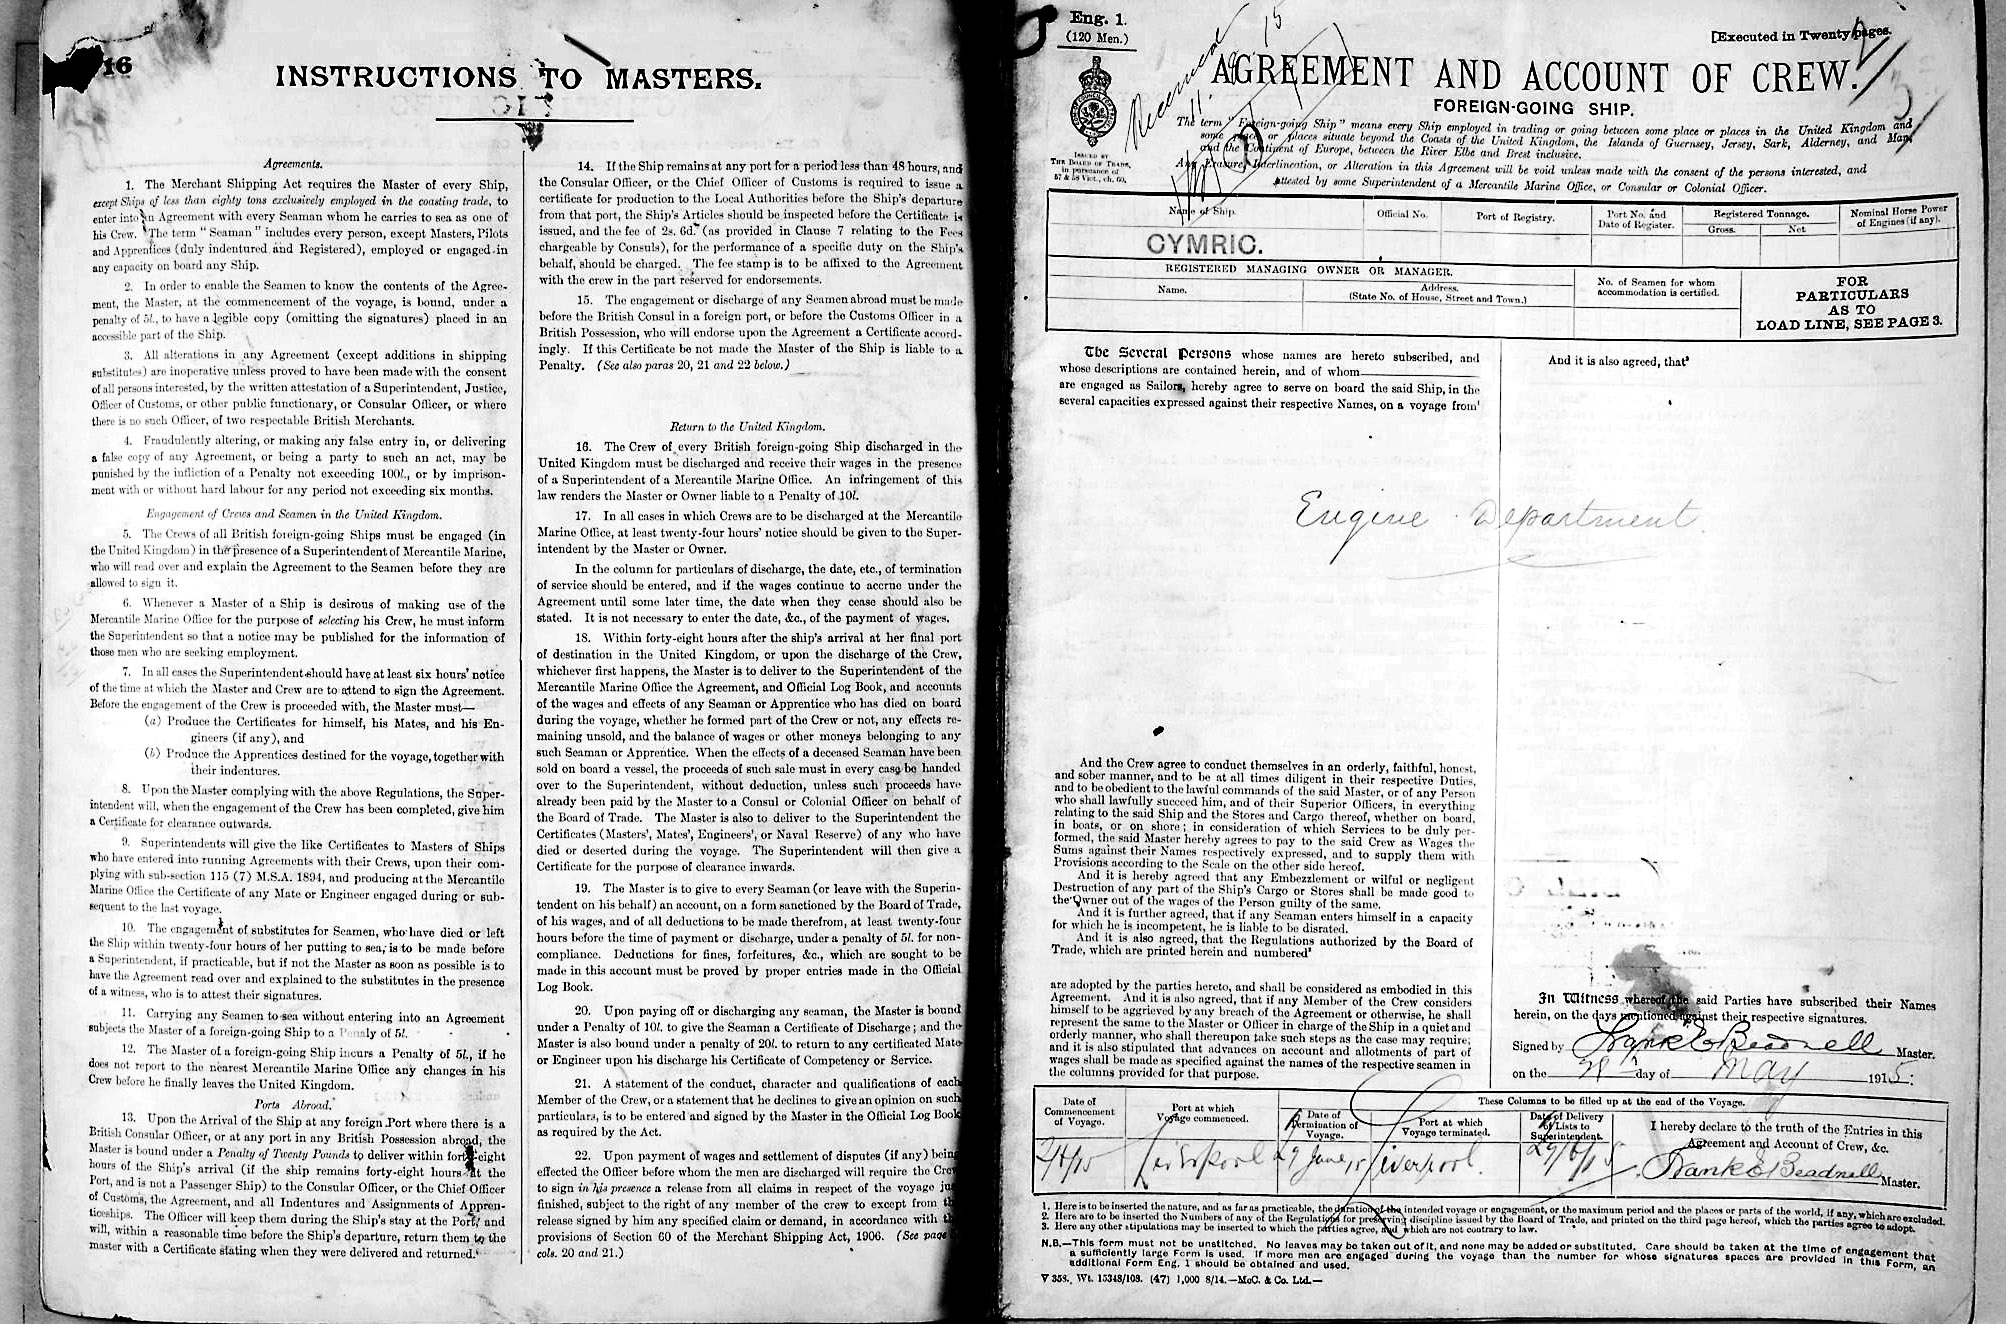 16
INSTRUCTIONS TO MASTERS.
Agreements.
1. The Merchant Shipping Act requires the Master of every Ship,
except Ships of less than eighty tons exclusively employed in the coasting trade, to
enter into an Agreement with every Seaman whom he carries to sea as one of
his Crew. The term "Seaman" includes every person, except Masters, Pilots
and Apprentices (duly indentured and Registered), employed or engaged in
any capacity on board any Ship.
2. In order to enable the Seamen to know the contents of the Agree-
ment, the Master, at the commencement of the voyage, is bound, under a
penalty of 5l., to have a legible copy (omitting the signatures) placed in an
accessible part of the Ship.
3. All alterations in any Agreement (except additions in shipping
substitutes) are inoperative unless proved to have been made with the consent
of all persons interested, by the written attestation of a Superintendent, Justice,
Officer of Customs, or other public functionary, or Consular Officer, or where
there is no such Officer, of two respectable British Merchants.
4. Fraudulently altering, or making any false entry in, or delivering
a false copy of any Agreement, or being a party to such an act, may be
punished by the infliction of a Penalty not exceeding 100l., or by imprison-
ment with or without hard labour for any period not exceeding six months.
Engagement of Crews and Seamen in the United Kingdom.
5. The Crews of all British foreign-going Ships must be engaged (in
the United Kingdom) in the presence of a Superintendent of Mercantile Marine,
who will read over and explain the Agreement to the Seamen before they are
allowed to sign it.
6. Whenever a Master of a Ship is desirous of making use of the
Mercantile Marine Office for the purpose of selecting his Crew, he must inform
the Superintendent so that a notice may be published for the information of
those men who are seeking employment.
7. In all cases the Superintendent should have at least six hours' notice
of the time at which the Master and Crew are to attend to sign the Agreement.
Before the engagement of the Crew is proceeded with, the Master must—
(a) Produce the Certificates for himself, his Mates, and his En-
gineers (if any), and
(b) Produce the Apprentices destined for the voyage, together with
their indentures.
8. Upon the Master complying with the above Regulations, the Super-
intendent will, when the engagement of the Crew has been completed, give him
a Certificate for clearance outwards.
9. Superintendents will give the like Certificates to Masters of Ships
who have entered into running Agreements with their Crews, upon their com-
plying with sub-section 115 (7) M.S.A. 1894, and producing at the Mercantile
Marine Office the Certificate of any Mate or Engineer engaged during or sub-
sequent to the last voyage.
10. The engagement of substitutes for Seamen, who have died or left
the Ship within twenty-four hours of her putting to sea, is to be made before
a Superintendent, if practicable, but if not the Master as soon as possible is to
have the Agreement read over and explained to the substitutes in the presence
of a witness, who is to attest their signatures.
11. Carrying any Seamen to sea without entering into an Agreement
subjects the Master of a foreign-going Ship to a Penaly of 5l.
12. The Master of a foreign-going Ship incurs a Penalty of 5l., if he
does not report to the nearest Mercantile Marine Office any changes in his
Crew before he finally leaves the United Kingdom.
Ports Abroad.
13. Upon the Arrival of the Ship at any foreign Port where there is a
British Consular Officer, or at any port in any British Possession abroad, the
Master is bound under a Penalty of Twenty Pounds to deliver within forty-eight
hours of the Ship's arrival (if the ship remains forty-eight hours at the
Port, and is not a Passenger Ship) to the Consular Officer, or the Chief Officer
of Customs, the Agreement, and all Indentures and Assignments of Appren-
ticeships. The Officer will keep them during the Ship's stay at the Port, and
will, within a reasonable time before the Ship's departure, return them to the
master with a Certificate stating when they were delivered and returned.
14. If the Ship remains at any port for a period less than 48 hours, and
the Consular Officer, or the Chief Officer of Customs is required to issue a
certificate for production to the Local Authorities before the Ship's departure
from that port, the Ship's Articles should be inspected before the Certificate is
issued, and the fee of 2s. 6d. (as provided in Clause 7 relating to the Fees
chargeable by Consuls), for the performance of a specific duty on the Ship's
behalf, should be charged. The fee stamp is to be affixed to the Agreement
with the crew in the part reserved for endorsements.
15. The engagement or discharge of any Seamen abroad must be made
before the British Consul in a foreign port, or before the Customs Officer in a
British Possession, who will endorse upon the Agreement a Certificate accord-
ingly. If this Certificate be not made the Master of the Ship is liable to a
Penalty. (See also paras 20, 21 and 22 below.)
Return to the United Kingdom.
16. The Crew of every British foreign-going Ship discharged in the
United Kingdom must be discharged and receive their wages in the presence
of a Superintendent of a Mercantile Marine Office. An infringement of this
law renders the Master or Owner liable to a Penalty of 10l.
17. In all cases in which Crews are to be discharged at the Mercantile
Marine Office, at least twenty-four hours' notice should be given to the Super-
intendent by the Master or Owner.
In the column for particulars of discharge, the date, etc., of termination
of service should be entered, and if the wages continue to accrue under the
Agreement until some later time, the date when they cease should also be
stated. It is not necessary to enter the date, &c., of the payment of wages.
18. Within forty-eight hours after the ship's arrival at her final port
of destination in the United Kingdom, or upon the discharge of the Crew,
whichever first happens, the Master is to deliver to the Superintendent of the
Mercantile Marine Office the Agreement, and Official Log Book, and accounts
of the wages and effects of any Seaman or Apprentice who has died on board
during the voyage, whether he formed part of the Crew or not, any effects re-
maining unsold, and the balance of wages or other moneys belonging to any
such Seaman or Apprentice. When the effects of a deceased Seaman have been
sold on board a vessel, the proceeds of such sale must in every case be handed
over to the Superintendent, without deduction, unless such proceeds have
already been paid by the Master to a Consul or Colonial Officer on behalf of
the Board of Trade. The Master is also to deliver to the Superintendent the
Certificates (Masters', Mates', Engineers', or Naval Reserve) of any who have
died or deserted during the voyage. The Superintendent will then give a
Certificate for the purpose of clearance inwards.
19. The Master is to give to every Seaman (or leave with the Superin-
tendent on his behalf) an account, on a form sanctioned by the Board of Trade,
of his wages, and of all deductions to be made therefrom, at least twenty-four
hours before the time of payment or discharge, under a penalty of 5l. for non-
compliance. Deductions for fines, forfeitures, &c., which are sought to be
made in this account must be proved by proper entries made in the Official
Log Book.
20. Upon paying off or discharging any seaman, the Master is bound
under a Penalty of 10l. to give the Seaman a Certificate of Discharge; and the
Master is also bound under a penalty of 20l. to return to any certificated Mate
or Engineer upon his discharge his Certificate of Competency or Service.
21. A statement of the conduct, character and qualifications of each
Member of the Crew, or a statement that he declines to give an opinion on such
particulars, is to be entered and signed by the Master in the Official Log Book
as required by the Act.
22. Upon payment of wages and settlement of disputes (if any) being
effected the Officer before whom the men are discharged will require the Crew
to sign in his presence a release from all claims in respect of the voyage ju
finished, subject to the right of any member of the crew to except from th
release signed by him any specified claim or demand, in accordance with th
provisions of Section 60 of the Merchant Shipping Act, 1906. (See page
cols. 20 and 21.)
Eng. 1.
(120 Men.)
[Executed in Twenty pages.
AGREEMENT AND ACCOUNT OF CREW.
FOREIGN-GOING SHIP.
ISSUED BY
THE BOARD OF TRADE,
in pursuance of
57 & 58 Vict., ch. 60.
The term "Foreign-going Ship" means every Ship employed in trading or going between some place or places in the United Kingdom and
some place or places situate beyond the Coasts of the United Kingdom, the Islands of Guernsey, Jersey, Sark, Alderney, and Man,
and the Continent of Europe, between the River Elbe and Brest inclusive.
Any Erasure, Interlineation, or Alteration in this Agreement will be void unless made with the consent of the persons interested, and
attested by some Superintendent of a Mercantile Marine Office, or Consular or Colonial Officer.
Name of Ship. Official No. Port of Registry. Port No. and Date of Register. Registered Tonnage. Gross. Net. Nominal Horse Power of Engines (if any).
CYMRIC.
REGISTERED MANAGING OWNER OR MANAGER.
Name. Address. (State No. of House, Street and Town.)
No. of Seamen for whom accommodation is certified.
FOR
PARTICULARS
AS TO
LOAD LINE, SEE PAGE 3.
The Several Persons whose names are hereto subscribed, and
whose descriptions are contained herein, and of whom
are engaged as Sailors, hereby agree to serve on board the said Ship, in the
several capacities expressed against their respective Names, on a voyage from¹
And it is also agreed, that³
Engine Department
And the Crew agree to conduct themselves in an orderly, faithful, honest,
and sober manner, and to be at all times diligent in their respective Duties,
and to be obedient to the lawful commands of the said Master, or of any Person
who shall lawfully succeed him, and of their Superior Officers, in everything
relating to the said Ship and the Stores and Cargo thereof, whether on board,
in boats, or on shore; in consideration of which Services to be duly per-
formed, the said Master hereby agrees to pay to the said Crew as Wages the
Sums against their Names respectively expressed, and to supply them with
Provisions according to the Scale on the other side hereof.
And it is hereby agreed that any Embezzlement or wilful or negligent
Destruction of any part of the Ship's Cargo or Stores shall be made good to
the Owner out of the wages of the Person guilty of the same.
And it is further agreed, that if any Seaman enters himself in a capacity
for which he is incompetent, he is liable to be disrated.
And it is also agreed, that the Regulations authorized by the Board of
Trade, which are printed herein and numbered²
are adopted by the parties hereto, and shall be considered as embodied in this
Agreement. And it is also agreed, that if any Member of the Crew considers
himself to be aggrieved by any breach of the Agreement or otherwise, he shall
represent the same to the Master or Officer in charge of the Ship in a quiet and
orderly manner, who shall thereupon take such steps as the case may require;
and it is also stipulated that advances on account and allotments of part of
wages shall be made as specified against the names of the respective seamen in
the columns provided for that purpose.
In Witness whereof the said Parties have subscribed their Names
herein, on the days mentioned against their respective signatures.
Signed by Frank E Beadnell Master.
on the 28th day of May 1915.
Date of Commencement of Voyage. Port at which Voyage commenced. These Columns to be filled up at the end of the Voyage.
Date of Termination of Voyage. Port at which Voyage terminated. Date of Delivery of Lists to Superintendent.
I hereby declare to the truth of the Entries in this
Agreement and Account of Crew, &c.
2/6/15 Liverpool 29 June 15 Liverpool. 29/6/15 Frank E Beadnell Master.
1. Here is to be inserted the nature, and as far as practicable, the duration of the intended voyage or engagement, or the maximum period and the places or parts of the world, if any, which are excluded.
2. Here are to be inserted the Numbers of any of the Regulations for preserving discipline issued by the Board of Trade, and printed on the third page hereof, which the parties agree to adopt.
3. Here any other stipulations may be inserted to which the parties agree, and which are not contrary to law.
N.B.—This form must not be unstitched. No leaves may be taken out of it, and none may be added or substituted. Care should be taken at the time of engagement that
a sufficiently large Form is used. If more men are engaged during the voyage than the number for whose signatures spaces are provided in this Form, an
additional Form Eng. 1 should be obtained and used.
V 358. Wt. 15348/108. (47) 1,000 8/14.—McC. & Co. Ltd.—